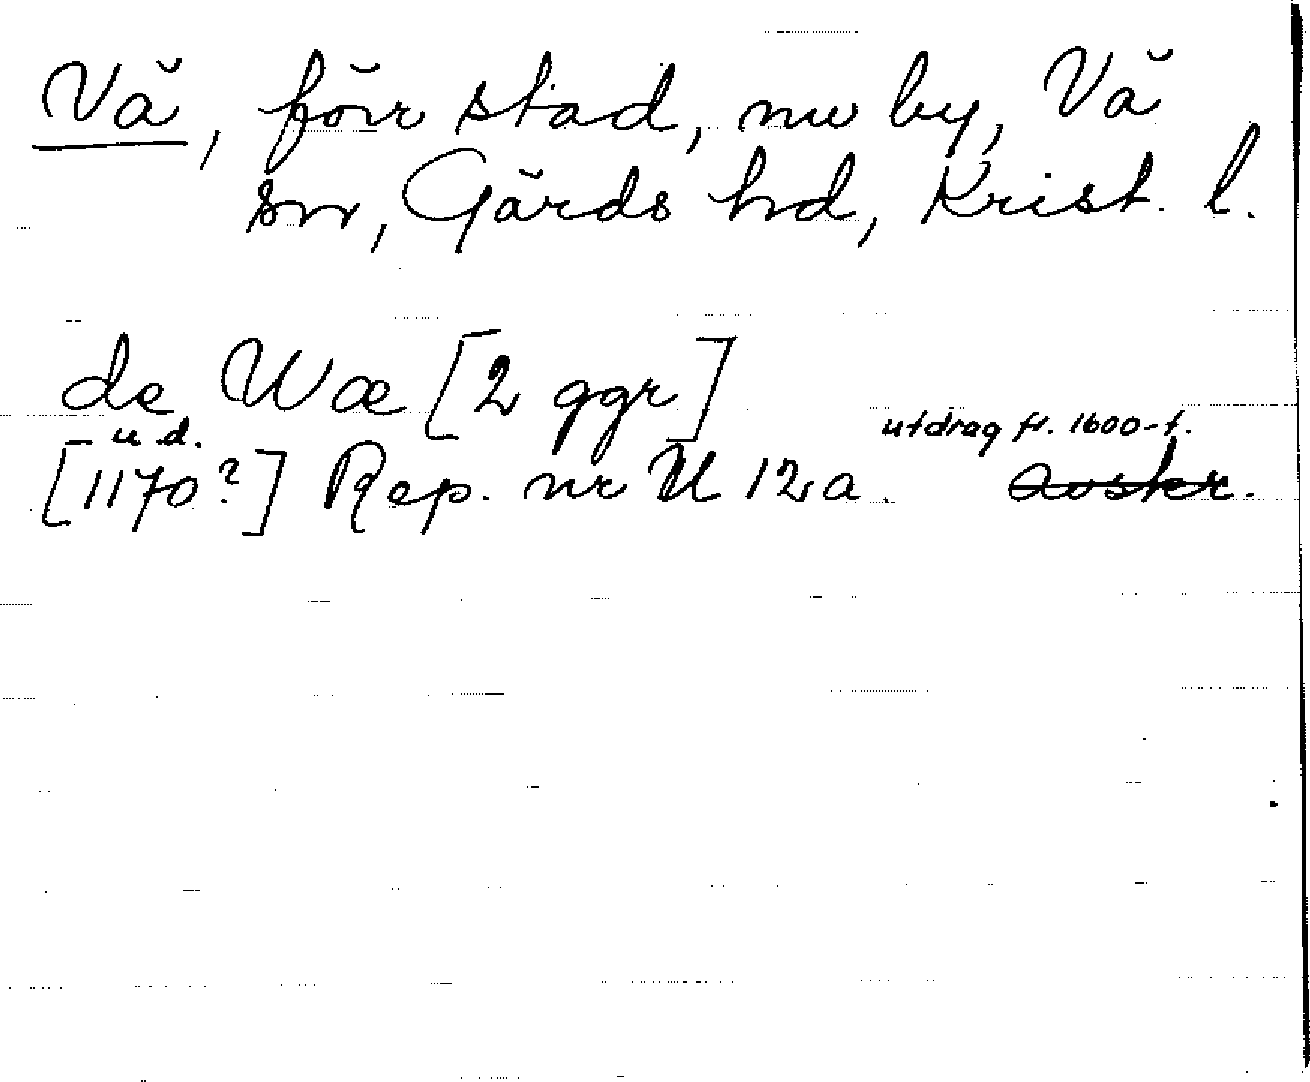 Vä, förr stad, nu by, Vä
sn, Gärds hd, Krist. l.
de Wæ [2 ggr]
u.d.
utdrag fr. 1600-t.
[1170?] Rep. nr U 12a. avskr.